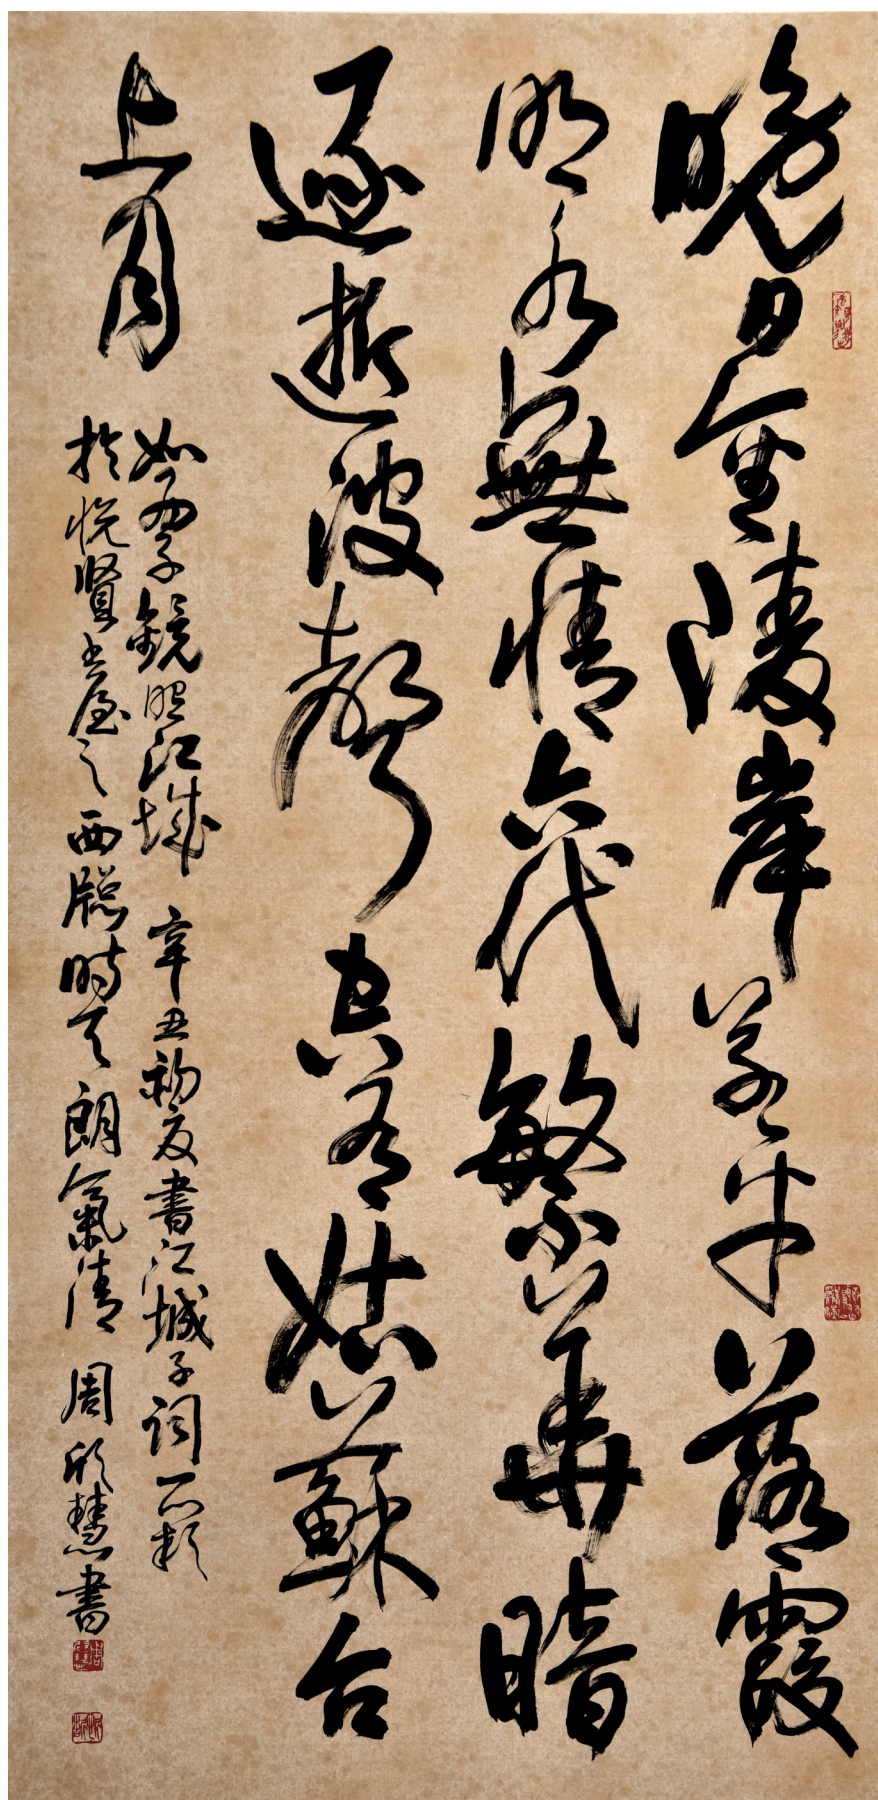 晚日金陵岸草平落霞
明水無情六代繁華暗
逐逝波聲空有姑蘇台
上月
如西子鏡照江城 辛丑初夏書江城子詞一顆
於悅賢書屋之西牕時天朗氣清 周欣慧書